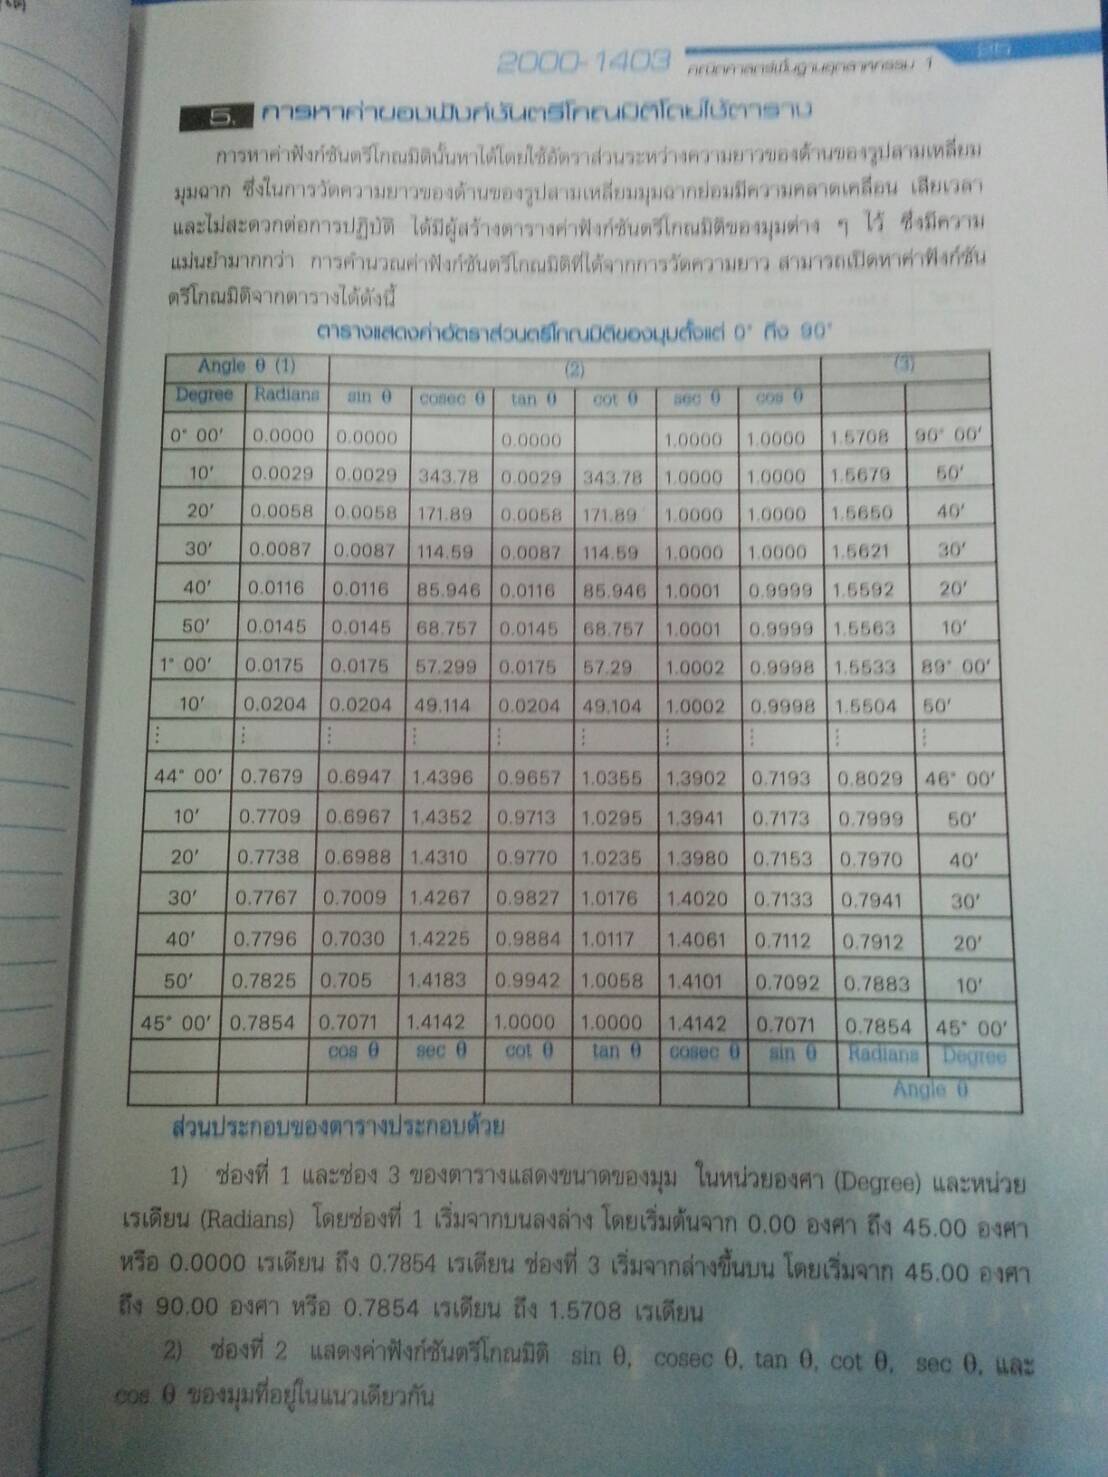 2000-1403 คณิตศาสตร์พื้นฐานอุตสาหกรรม 1
5. การหาค่าของฟังก์ชันตรีโกณมิติโดยใช้ตาราง
การหาค่าฟังก์ชันตรีโกณมิตินั้นหาได้โดยใช้อัตราส่วนระหว่างความยาวของด้านของรูปสามเหลี่ยม
มุมฉาก ซึ่งในการวัดความยาวของด้านของรูปสามเหลี่ยมมุมฉากย่อมมีความคลาดเคลื่อน เสียเวลา
และไม่สะดวกต่อการปฏิบัติ ได้มีผู้สร้างตารางค่าฟังก์ชันตรีโกณมิติของมุมต่าง ๆ ไว้ ซึ่งมีความ
แม่นยำมากกว่า การคำนวณค่าฟังก์ชันตรีโกณมิติที่ได้จากการวัดความยาว สามารถเปิดหาค่าฟังก์ชัน
ตรีโกณมิติจากตารางได้ดังนี้
ตารางแสดงค่าอัตราส่วนตรีโกณมิติของมุมตั้งแต่ 0° ถึง 90°
Angle θ (1) (2) (3)
Degree Radians sin θ cosec θ tan θ cot θ sec θ cos θ
0° 00′ 0.0000 0.0000 0.0000 1.0000 1.0000 1.5708 90° 00′
10′ 0.0029 0.0029 343.78 0.0029 343.78 1.0000 1.0000 1.5679 50′
20′ 0.0058 0.0058 171.89 0.0058 171.89 1.0000 1.0000 1.5650 40′
30′ 0.0087 0.0087 114.59 0.0087 114.59 1.0000 1.0000 1.5621 30′
40′ 0.0116 0.0116 85.946 0.0116 85.946 1.0001 0.9999 1.5592 20′
50′ 0.0145 0.0145 68.757 0.0145 68.757 1.0001 0.9999 1.5563 10′
1° 00′ 0.0175 0.0175 57.299 0.0175 57.29 1.0002 0.9998 1.5533 89° 00′
10′ 0.0204 0.0204 49.114 0.0204 49.104 1.0002 0.9998 1.5504 50′
⋮ ⋮ ⋮ ⋮ ⋮ ⋮ ⋮ ⋮ ⋮ ⋮
44° 00′ 0.7679 0.6947 1.4396 0.9657 1.0355 1.3902 0.7193 0.8029 46° 00′
10′ 0.7709 0.6967 1.4352 0.9713 1.0295 1.3941 0.7173 0.7999 50′
20′ 0.7738 0.6988 1.4310 0.9770 1.0235 1.3980 0.7153 0.7970 40′
30′ 0.7767 0.7009 1.4267 0.9827 1.0176 1.4020 0.7133 0.7941 30′
40′ 0.7796 0.7030 1.4225 0.9884 1.0117 1.4061 0.7112 0.7912 20′
50′ 0.7825 0.705 1.4183 0.9942 1.0058 1.4101 0.7092 0.7883 10′
45° 00′ 0.7854 0.7071 1.4142 1.0000 1.0000 1.4142 0.7071 0.7854 45° 00′
cos θ sec θ cot θ tan θ cosec θ sin θ Radians Degree
Angle θ
ส่วนประกอบของตารางประกอบด้วย
1) ช่องที่ 1 และช่อง 3 ของตารางแสดงขนาดของมุม ในหน่วยองศา (Degree) และหน่วย
เรเดียน (Radians) โดยช่องที่ 1 เริ่มจากบนลงล่าง โดยเริ่มต้นจาก 0.00 องศา ถึง 45.00 องศา
หรือ 0.0000 เรเดียน ถึง 0.7854 เรเดียน ช่องที่ 3 เริ่มจากล่างขึ้นบน โดยเริ่มจาก 45.00 องศา
ถึง 90.00 องศา หรือ 0.7854 เรเดียน ถึง 1.5708 เรเดียน
2) ช่องที่ 2 แสดงค่าฟังก์ชันตรีโกณมิติ sin θ, cosec θ, tan θ, cot θ, sec θ, และ
cos θ ของมุมที่อยู่ในแนวเดียวกัน